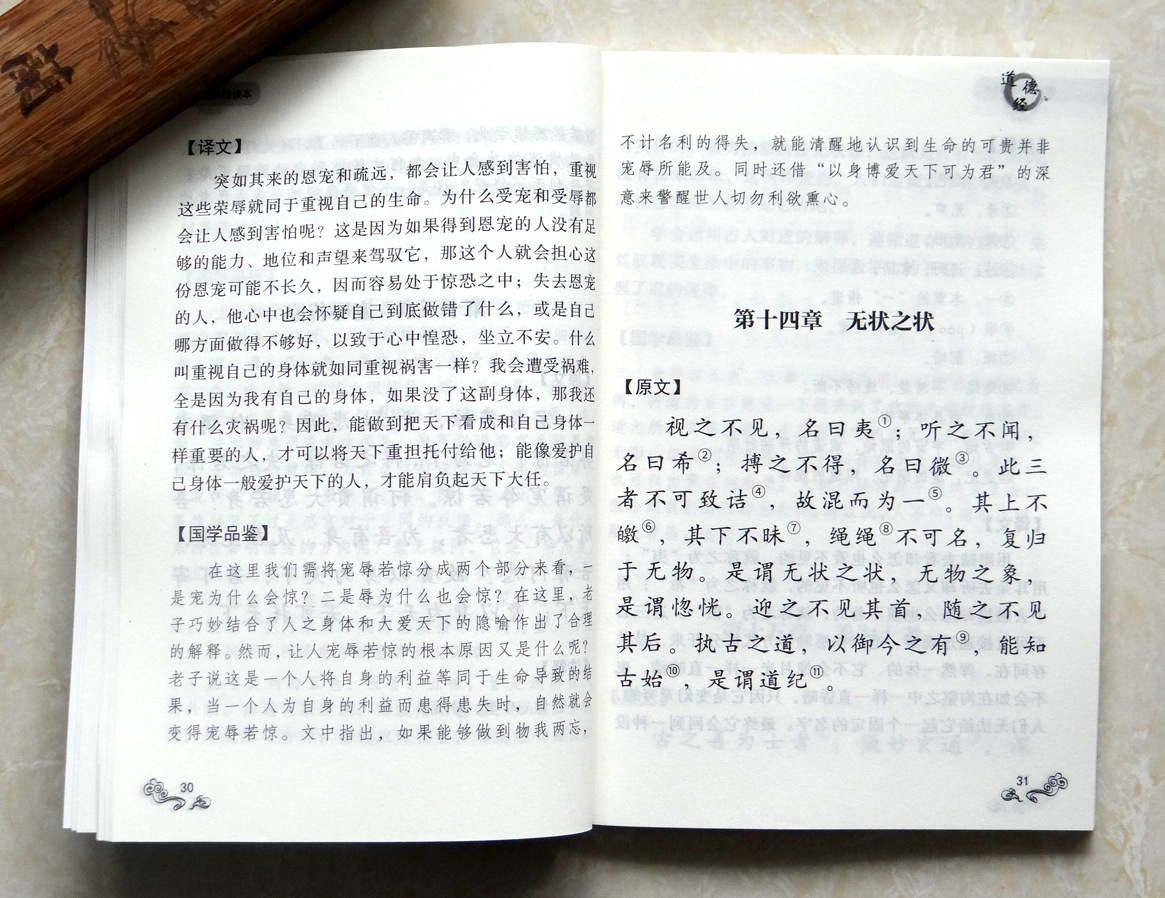 读本
【译文】
突如其来的恩宠和疏远，都会让人感到害怕，重视
这些荣辱就同于重视自己的生命。为什么受宠和受辱都
会让人感到害怕呢？这是因为如果得到恩宠的人没有足
够的能力、地位和声望来驾驭它，那这个人就会担心这
份恩宠可能不长久，因而容易处于惊恐之中；失去恩宠
的人，他心中也会怀疑自己到底做错了什么，或是自己
哪方面做得不够好，以致于心中惶恐，坐立不安。什么
叫重视自己的身体就如同重视祸害一样？我会遭受祸难，
全是因为我有自己的身体，如果没了这副身体，那我还
有什么灾祸呢？因此，能做到把天下看成和自己身体一
样重要的人，才可以将天下重担托付给他；能像爱护自
己身体一般爱护天下的人，才能肩负起天下大任。
【国学品鉴】
在这里我们需将宠辱若惊分成两个部分来看，一
是宠为什么会惊？二是辱为什么也会惊？在这里，老
子巧妙结合了人之身体和大爱天下的隐喻作出了合理
的解释。然而，让人宠辱若惊的根本原因又是什么呢？
老子说这是一个人将自身的利益等同于生命导致的结
果，当一个人为自身的利益而患得患失时，自然就会
变得宠辱若惊。文中指出，如果能够做到物我两忘，
30
道德经
不计名利的得失，就能清醒地认识到生命的可贵并非
宠辱所能及。同时还借“以身博爱天下可为君”的深
意来警醒世人切勿利欲熏心。
第十四章 无状之状
【原文】
视之不见，名曰夷①；听之不闻，
名曰希②；搏之不得，名曰微③。此三
者不可致诘④，故混而为一⑤。其上不
皦⑥，其下不昧⑦，绳绳⑧不可名，复归
于无物。是谓无状之状，无物之象，
是谓惚恍。迎之不见其首，随之不见
其后。执古之道，以御今之有⑨，能知
古始⑩，是谓道纪⑪。
31